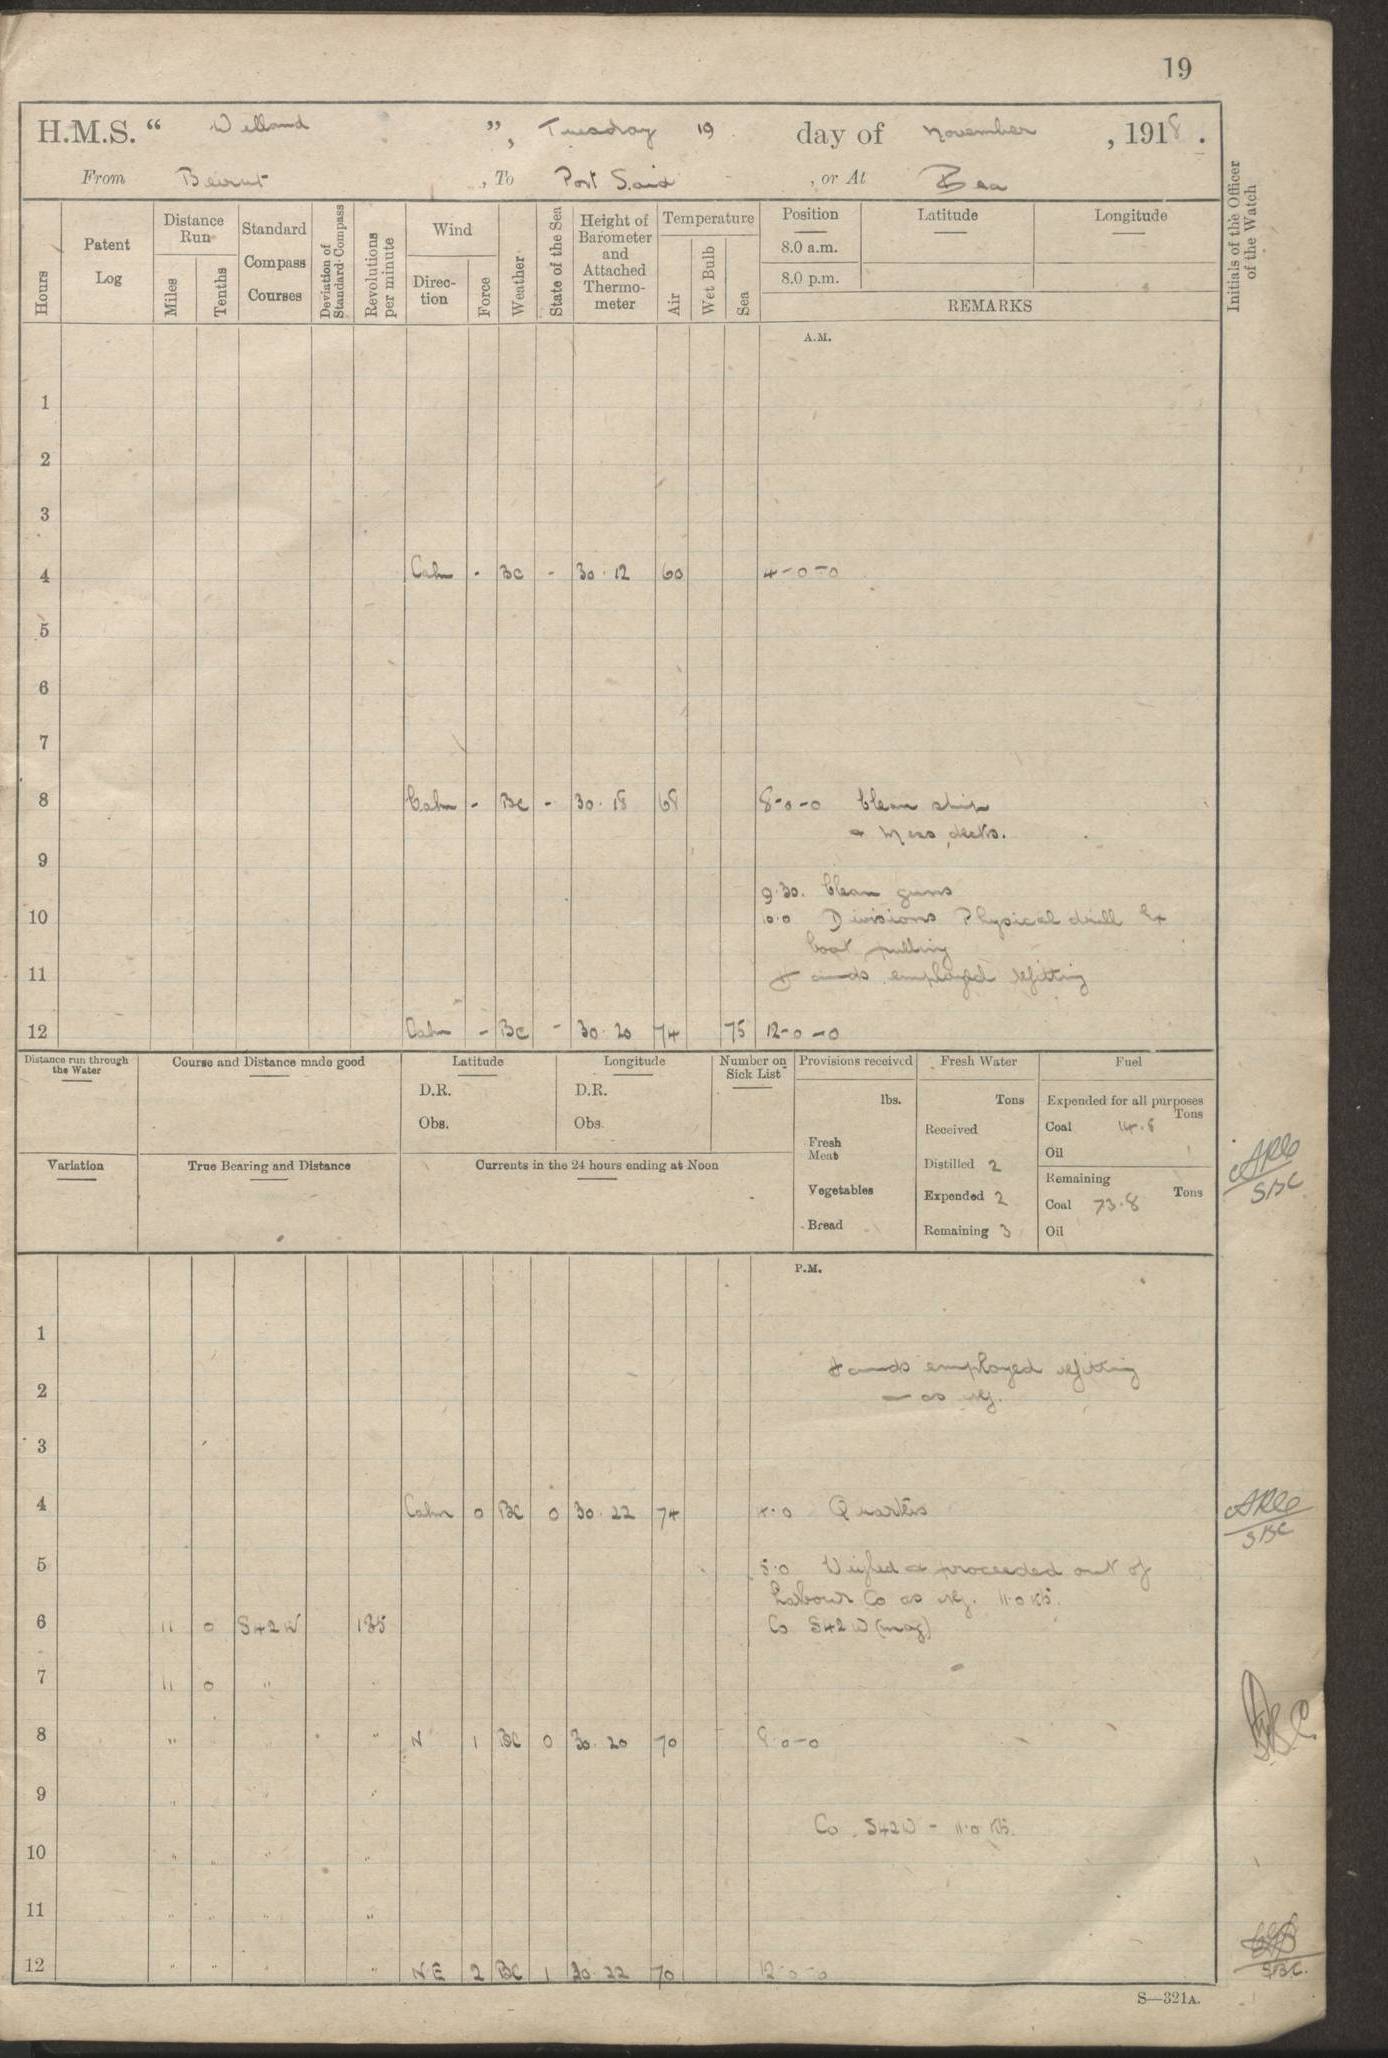 19
H.M.S. “ Welland ”, Tuesday 19 day of November , 1918 .
From Beirut , To Port Said , or At Sea
Hours
Patent Log
Distance Run
Miles
Tenths
Standard Compass Courses
Deviation of Standard Compass
Revolutions per minute
Wind
Direction
Force
Weather
State of the Sea
Height of Barometer and Attached Thermometer
Temperature
Air
Wet Bulb
Sea
Position
8.0 a.m.
8.0 p.m.
Latitude
Longitude
REMARKS
Initials of the Officer of the Watch
A.M.
1
2
3
4 Calm - BC - 30.12 60 4-0-0
5
6
7
8 Calm - BC - 30.18 68 8-0-0 Clean ship
& Mess decks.
9
9.30. Clean guns
10 10.0 Divisions Physical drill Ex
boat pulling
11 Hands employed refitting
12 Calm - BC - 30.20 74 75 12-0-0
Distance run through the Water
Course and Distance made good
Latitude
D.R.
Obs.
Longitude
D.R.
Obs.
Number on Sick List
Provisions received
lbs.
Fresh Meat
Vegetables
Bread
Fresh Water
Tons
Received
Distilled 2
Expended 2
Remaining 3
Fuel
Expended for all purposes
Tons
Coal 14.8
Oil
Remaining
Tons
Coal 73.8
Oil
Variation
True Bearing and Distance
Currents in the 24 hours ending at Noon
SBC
P.M.
1
Hands employed refitting
2 as req.
3
4 Calm 0 BC 0 30.22 74 4.0 Quarters
SBC
5 5.0 Weighed & proceeded out of
harbour Co as req. 11.0 kts.
6 11 0 S42W 185 Co S42W (mag)
7 11 0 "
8 " " N 1 BC 0 30.20 70 8-0-0
SBC
9 " "
Co. S42W - 11.0 kts.
10 " " " "
11 " " " "
12 " " " " NE 2 BC 1 30.22 70 12-0-0
SBC.
S—321A.